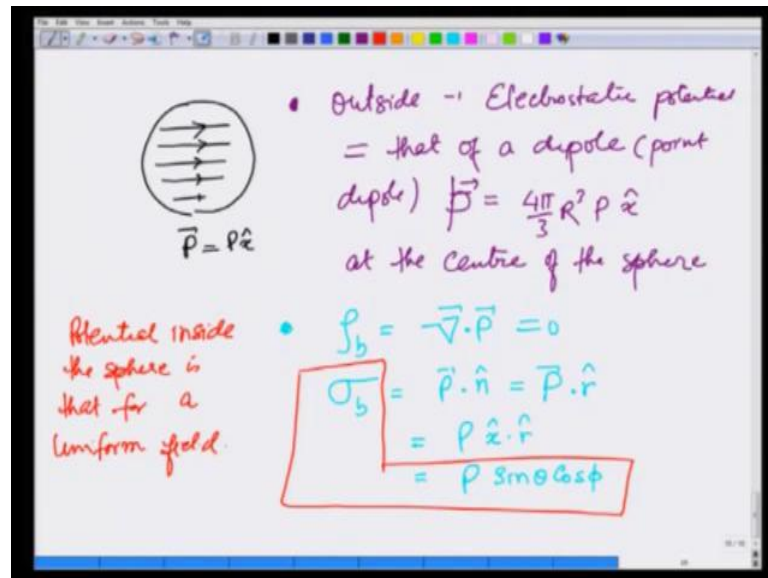 File Edit View Insert Actions Tools Help
• Outside → Electrostatic potential
= that of a dipole (point
dipole) p⃗ = 4π/3 R³ P x̂
at the centre of the sphere
P⃗ = P x̂
Potential inside
the sphere is
that for a
Uniform field.
• ρ_b = -∇⃗·P⃗ = 0
σ_b = P⃗·n̂ = P⃗·r̂
= P x̂·r̂
= P sinθ cosϕ